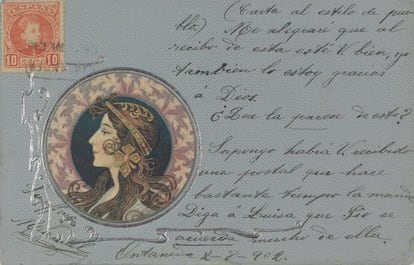 ESPAÑA
10 10
(Carta al estilo de pue
blo) Me alegraré que al
recibo de esta esté V. bien, yo
tambien lo estoy gracias
á Dios.
¿Que la parece de esto?
Supongo habrá V. recibido
una postal que hace
bastante tiempo la mandé
Diga á Luisa que Pio se
acuerda mucho de ella.
Ontaneda 2-8-902.